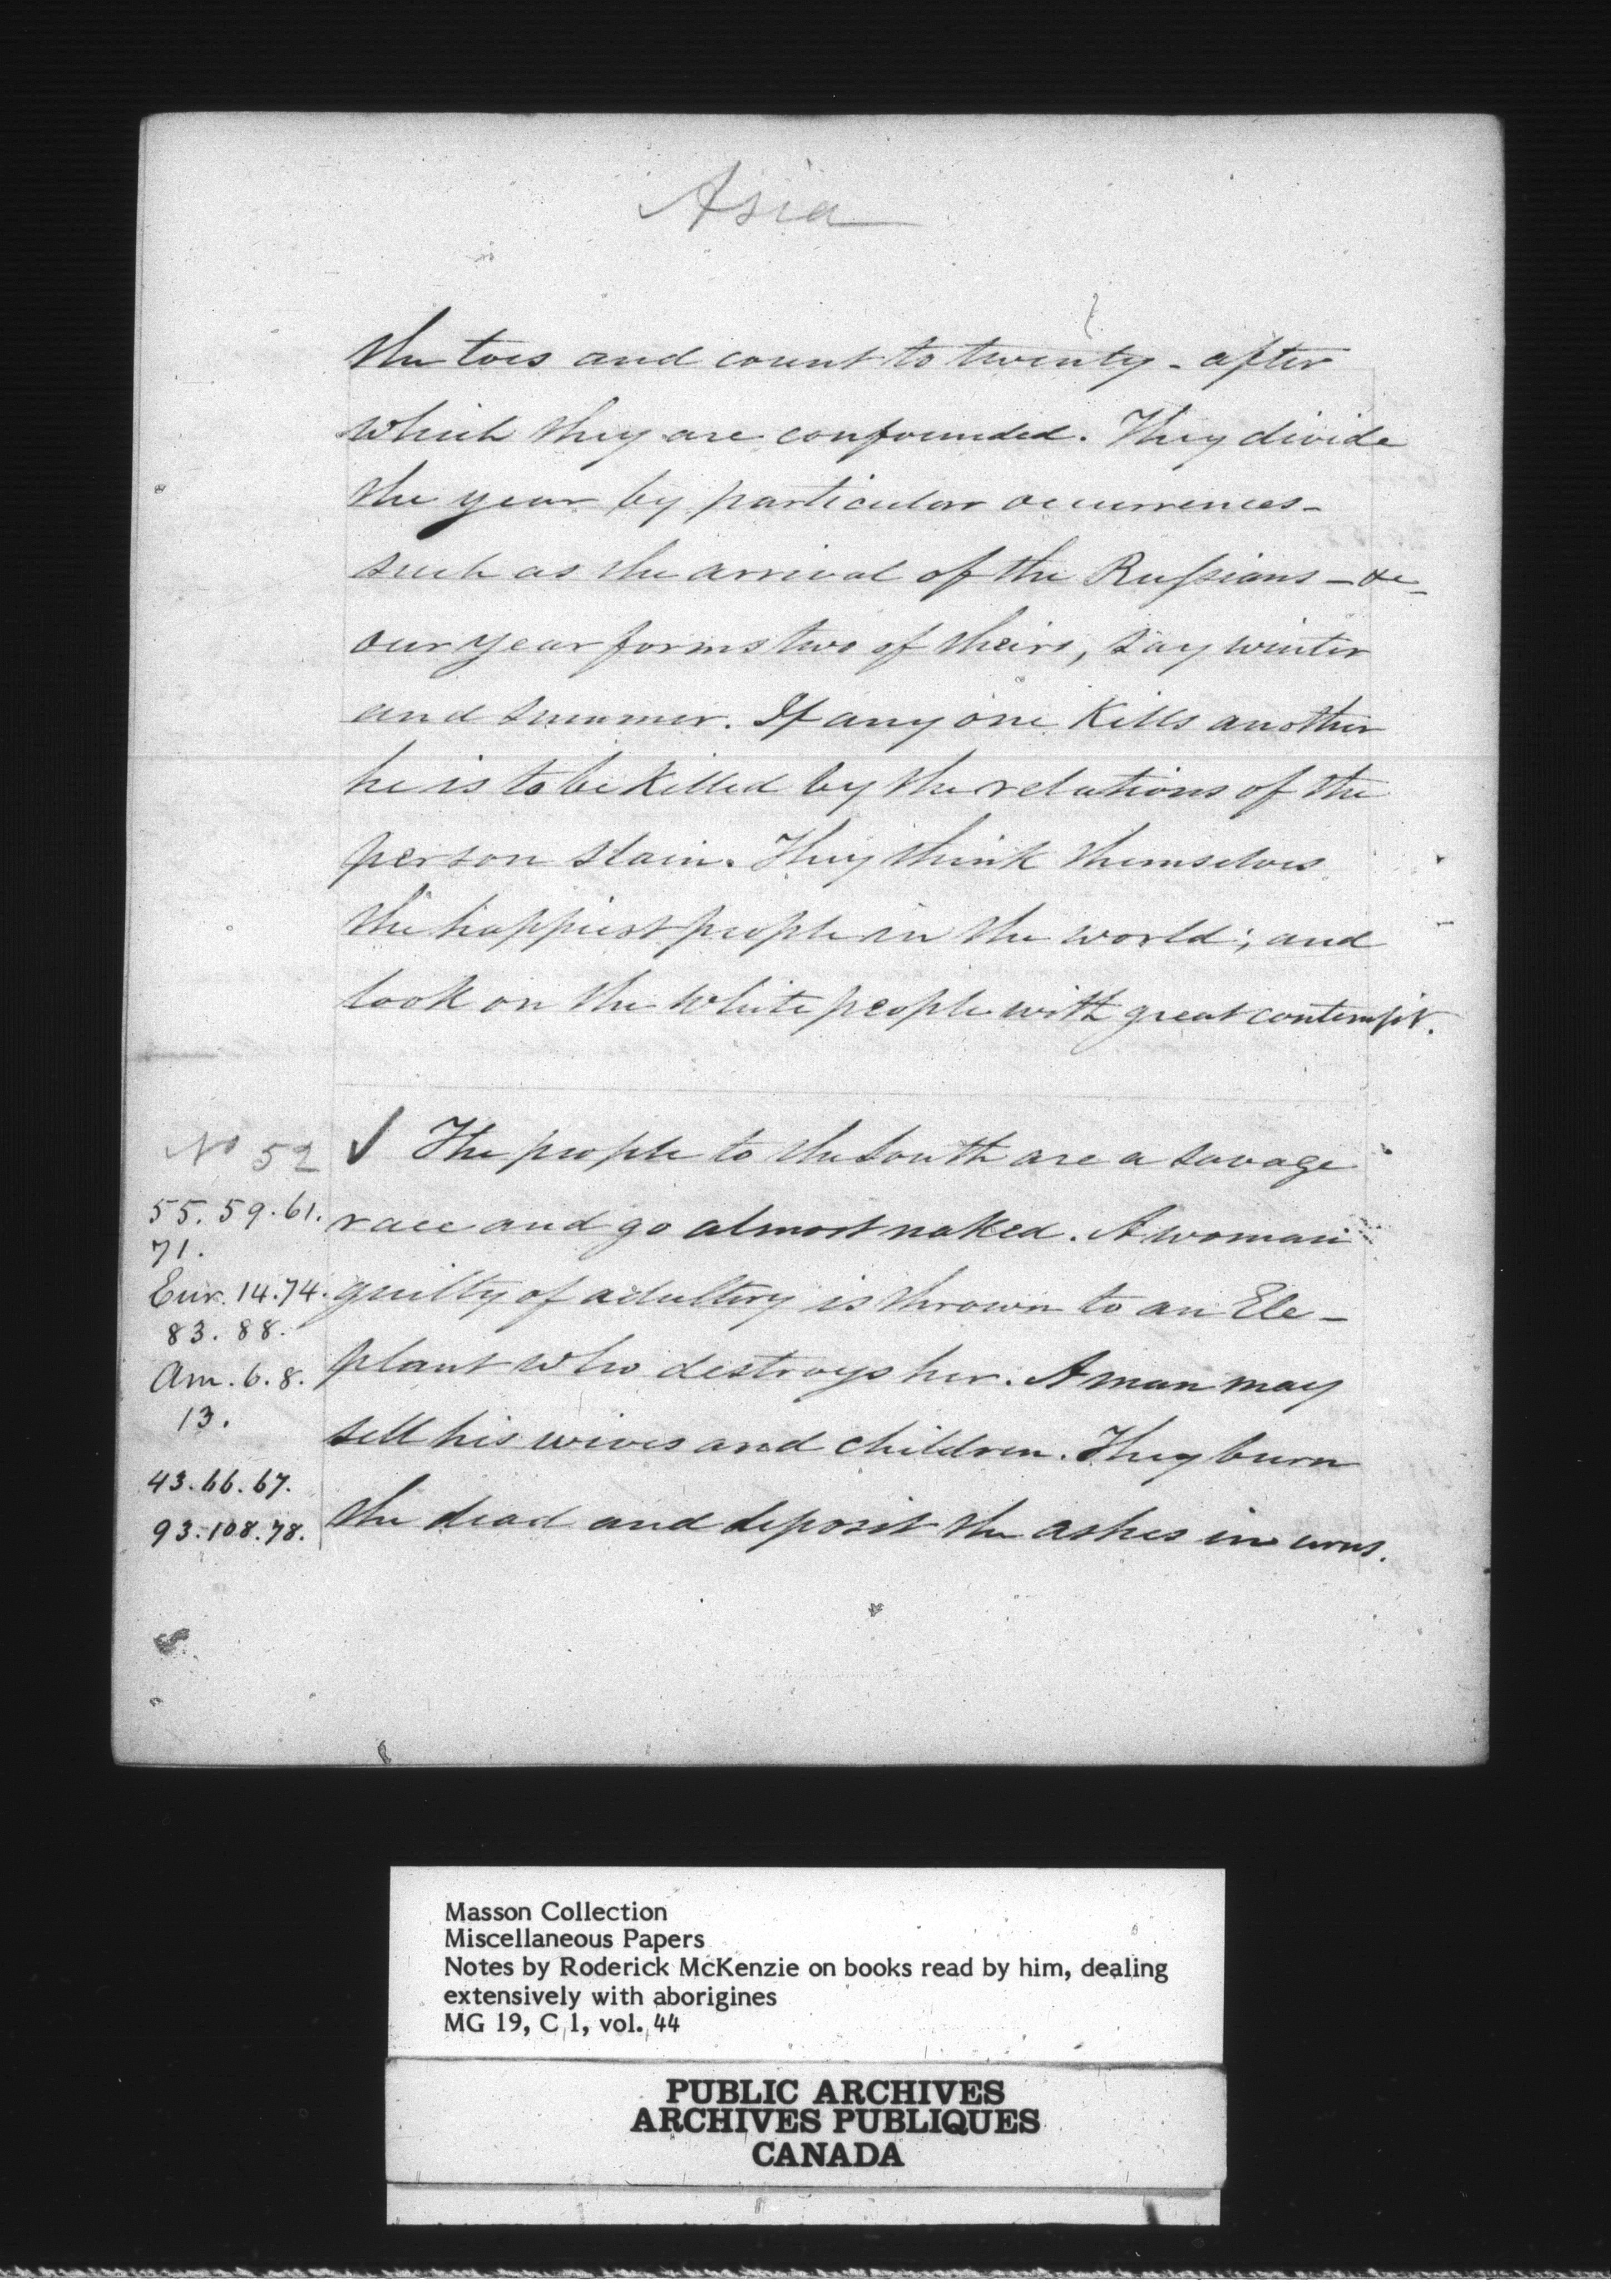 Asia
the toes and count to twenty - after
which they are confounded. They divide
the year by particular occurrences -
such as the arrival of the Russians - &c -
our year forms two of theirs, say winter
and summer. If any one kills another
he is to be killed by the relations of the
person slain. They think themselves
the happiest people in the world; and
look on the white people with great contempt.
No 52
✓ The people to the South are a savage
55. 59. 61.
race and go almost naked. A woman
71.
Eur. 14. 74.
guilty of adultery is thrown to an Ele-
83. 88.
Am. 6. 8.
phant who destroys her. A man may
13.
sell his wives and children. They burn
43. 66. 67.
93. 108. 78.
the dead and deposit the ashes in urns.
Masson Collection
Miscellaneous Papers
Notes by Roderick McKenzie on books read by him, dealing
extensively with aborigines
MG 19, C 1, vol. 44
PUBLIC ARCHIVES
ARCHIVES PUBLIQUES
CANADA